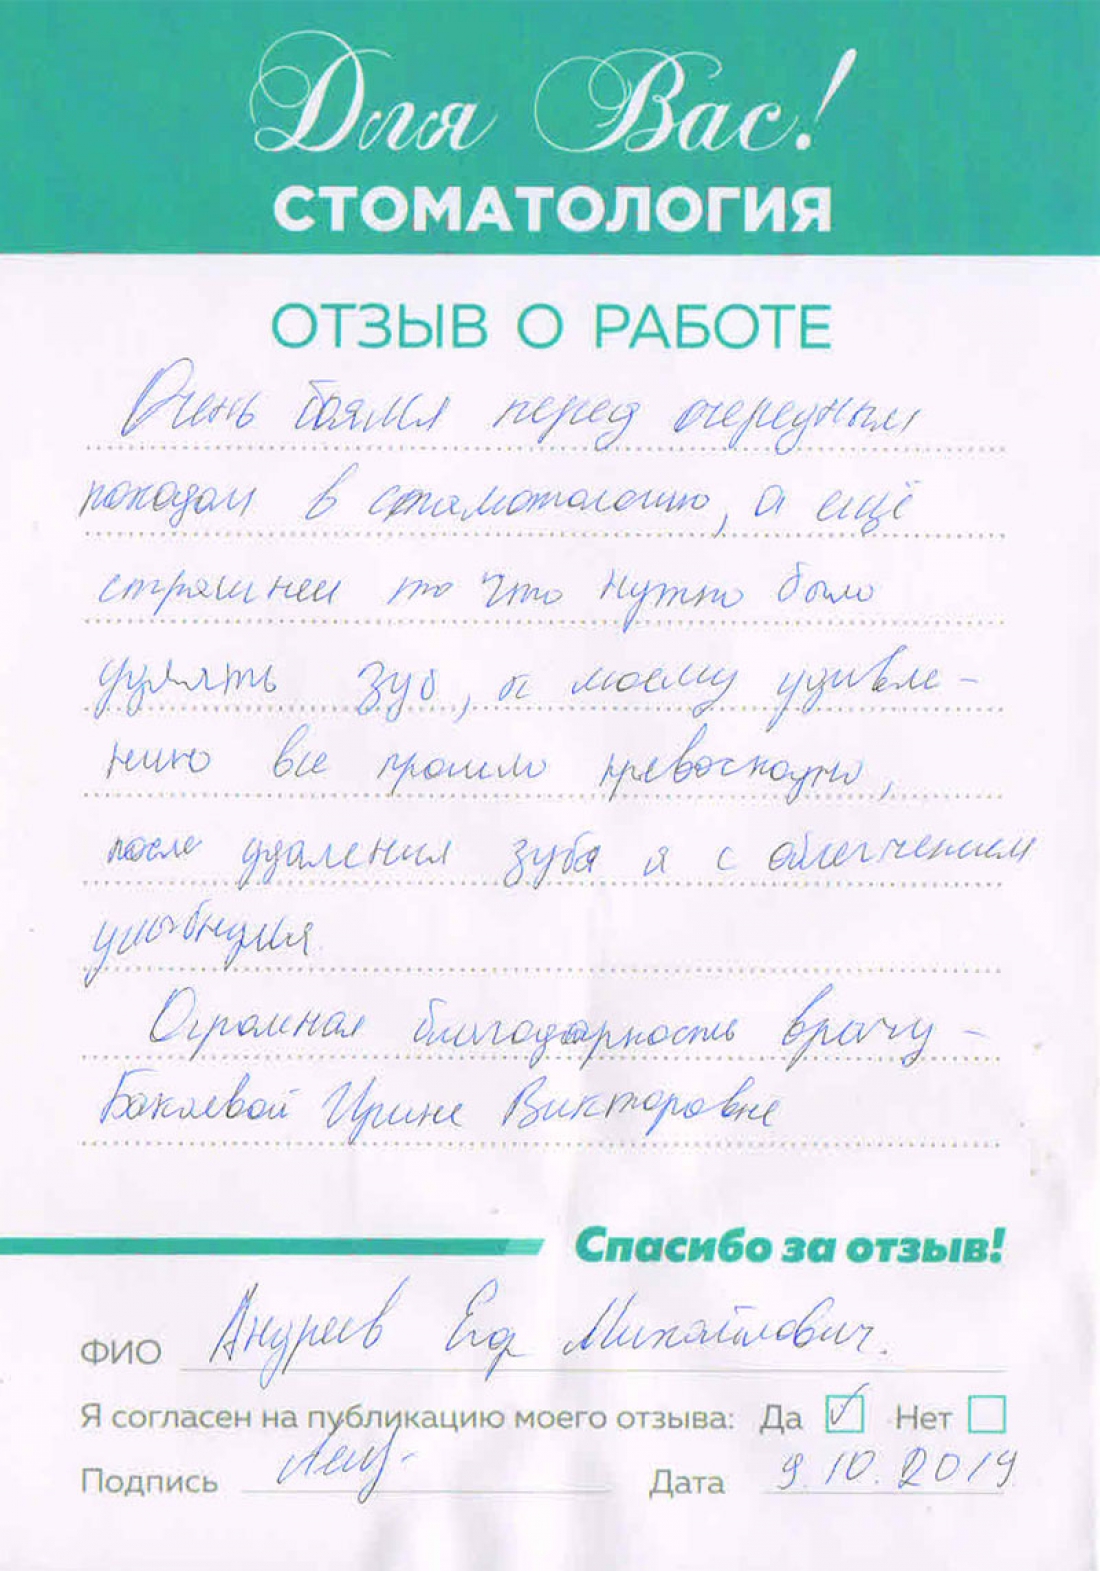 Для Вас!
СТОМАТОЛОГИЯ
ОТЗЫВ О РАБОТЕ
Очень боялся перед очередным
походом в стамотологию, а ещё
страшнее то что нужно было
удалять зуб, к моему удивле-
нию все прошло превосходно,
после удаления зуба я с облегчением
улыбнулся.
Огромная благодарность врачу -
Бакаевой Ирине Викторовне
Спасибо за отзыв!
ФИО Андреев Егор Михайлович.
Я согласен на публикацию моего отзыва: Да ✓ Нет
Подпись
Дата 9.10.2019